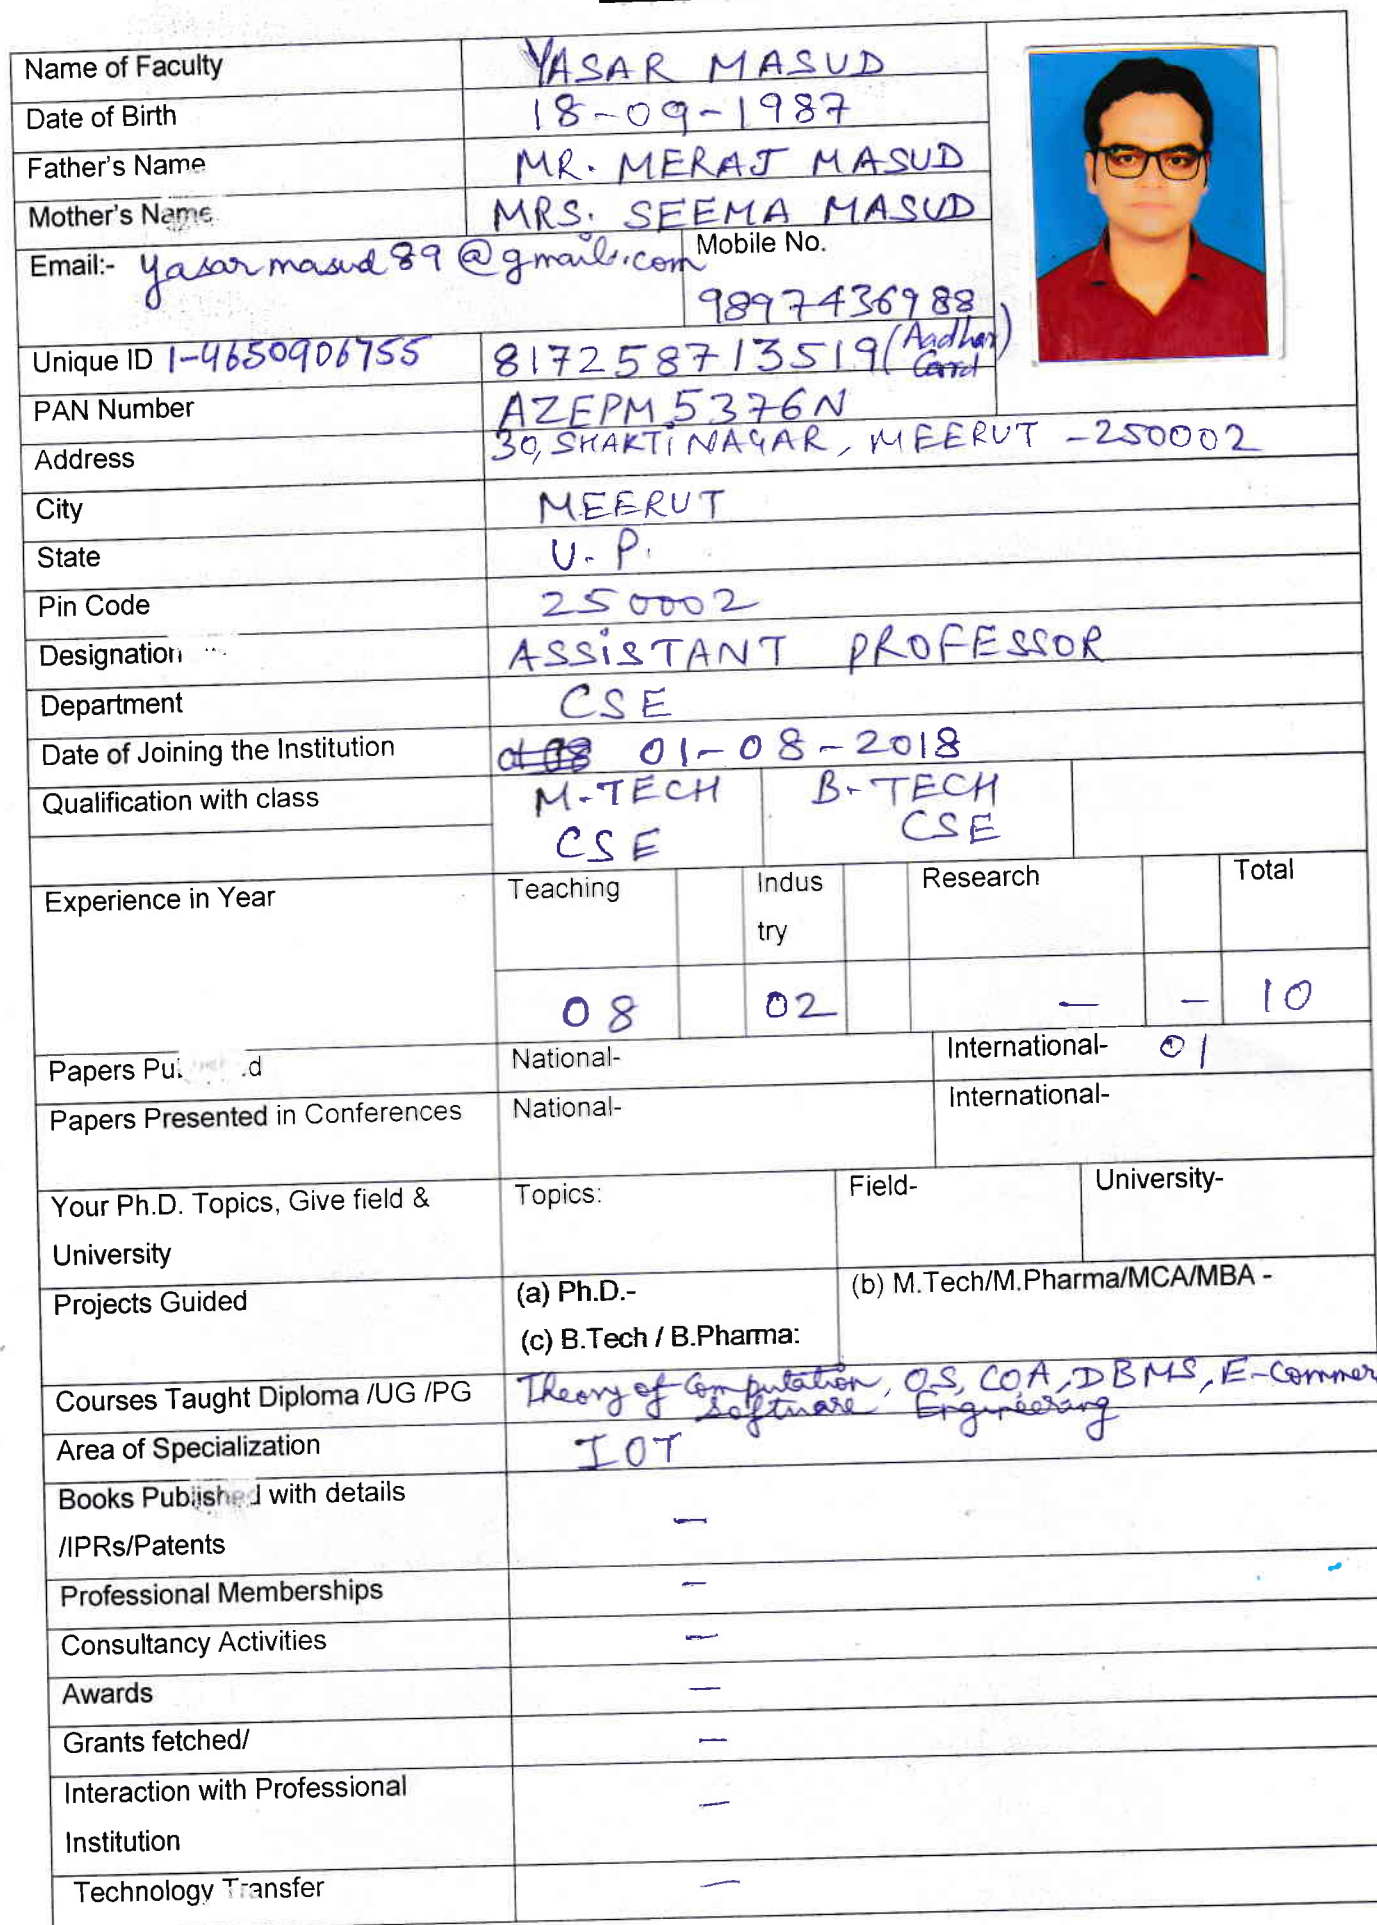 Name of Faculty YASAR MASUD
Date of Birth 18-09-1987
Father's Name MR. MERAJ MASUD
Mother's Name MRS. SEEMA MASUD
Email:- yasarmasud89@gmail.com Mobile No.
9897436988
Unique ID 1-4650906755 817258713519 (Aadhar Card)
PAN Number AZEPM5376N
Address 30, SHAKTI NAGAR, MEERUT -250002
City MEERUT
State U.P.
Pin Code 250002
Designation ASSISTANT PROFESSOR
Department CSE
Date of Joining the Institution 01-08-2018
Qualification with class M-TECH B-TECH
CSE CSE
Experience in Year Teaching Indus Research Total
try
08 02 - - 10
Papers National- International- 01
Papers Presented in Conferences National- International-
Your Ph.D. Topics, Give field & Topics: Field- University-
University
Projects Guided (a) Ph.D.- (b) M.Tech/M.Pharma/MCA/MBA -
(c) B.Tech / B.Pharma:
Courses Taught Diploma /UG /PG Theory of Computation, OS, COA, DBMS, E-Commer
Software Engineering
Area of Specialization IOT
Books Published with details
/IPRs/Patents -
Professional Memberships -
Consultancy Activities -
Awards -
Grants fetched/ -
Interaction with Professional -
Institution
Technology Transfer -